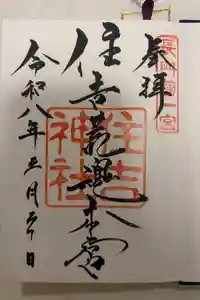 奉拝
長門國一宮
住吉荒魂本宮
住吉神社
令和八年五月日